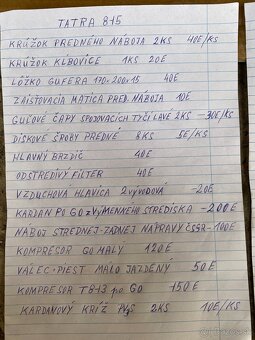 TATRA 815
KRÚŽOK PREDNÉHO NÁBOJA 2KS 40E/KS
KRÚŽOK KLBOVICE 1KS 20E
LÔŽKO GUFERA 170x200x15 40E
ZAISŤOVACIA MATICA PRED. NÁBOJA 10E
GUĽOVÉ ČAPY SPOJOVACÍCH TYČÍ ĽAVÉ 2KS -30E/KS
DISKOVÉ ŠROBY PREDNÉ 8KS 5E/KS
HLAVNÝ BRZDIČ 40E
ODSTREDIVÝ FILTER 40E
VZDUCHOVÁ HLAVICA 2 VÝVODOVÁ -20E
KARDAN PO GO z VÝMENKÉHO STREDISKA -200E
NÁBOJ STREDNEJ-ZADNEJ NÁPRAVY ČSSR -100E
KOMPRESOR GO MALÝ 120E
VALEC + PIEST MÁLO JAZDENÝ 50E
KOMPRESOR T813 po GO 150E
KARDANOVÝ KRÍŽ 2KS 10E/KS